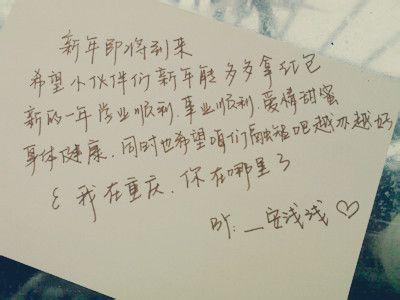 新年即将到来
希望小伙伴们新年能多多拿红包
新的一年学业顺利.事业顺利.爱情甜蜜
身体健康.同时也希望咱们融锦吧越办越好
ξ 我在重庆.你在哪里 3
BY:__安浅浅♡